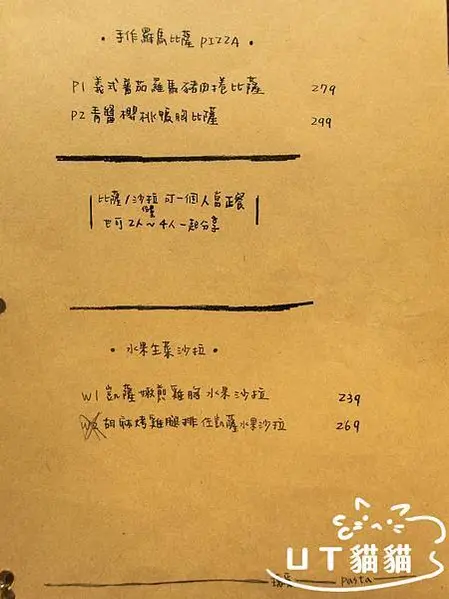 • 手作羅馬比薩 PIZZA •
P1 義式蕃茄羅馬豬肉捲比薩 279
P2 青醬櫻桃鴨胸比薩 299
比薩/沙拉 可一個人當正餐
也可 2人~4人一起分享
• 水果生菜沙拉 •
W1 凱薩嫩煎雞胸水果沙拉 239
W2 胡麻烤雞腿排佐凱薩水果沙拉 269
UT貓貓
Pasta